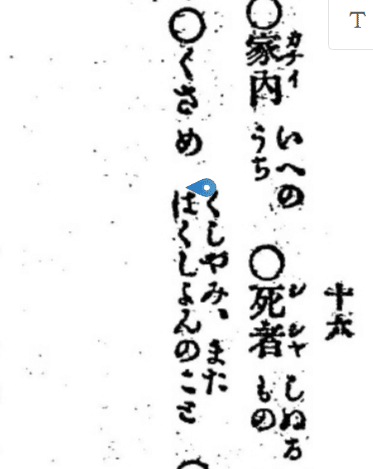 十六
○家内 カナイ いへの
うち
○死者 シシヤ しぬる
もの
○くさめ くしやみ、また
はくしよんのこと
T